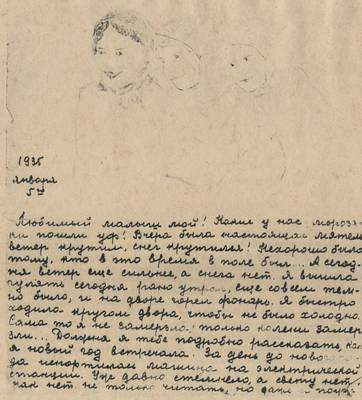 1935
января
5го
Любимый малыш мой! Какие у нас мороз-
ки пошли уф! Вчера была настоящая мятель
ветер крутил, снег крутился! Нехорошо было
тому, кто в это время в поле был... А сегод-
ня ветер еще сильнее, а снега нет. Я вышла
гулять сегодня рано утром, еще совсем тем-
но было, и на дворе горел фонарь. Я быстро
ходила кругом двора, чтобы не было холодно.
Сама то я не замерзла, только колени замер-
зли... Должна я тебе подробно рассказать как
я новый год встречала. За день до нового
да испортилась машина на электрической
станции. Уже давно стемнело, а свету нет-
как нет. не только читать, но даже